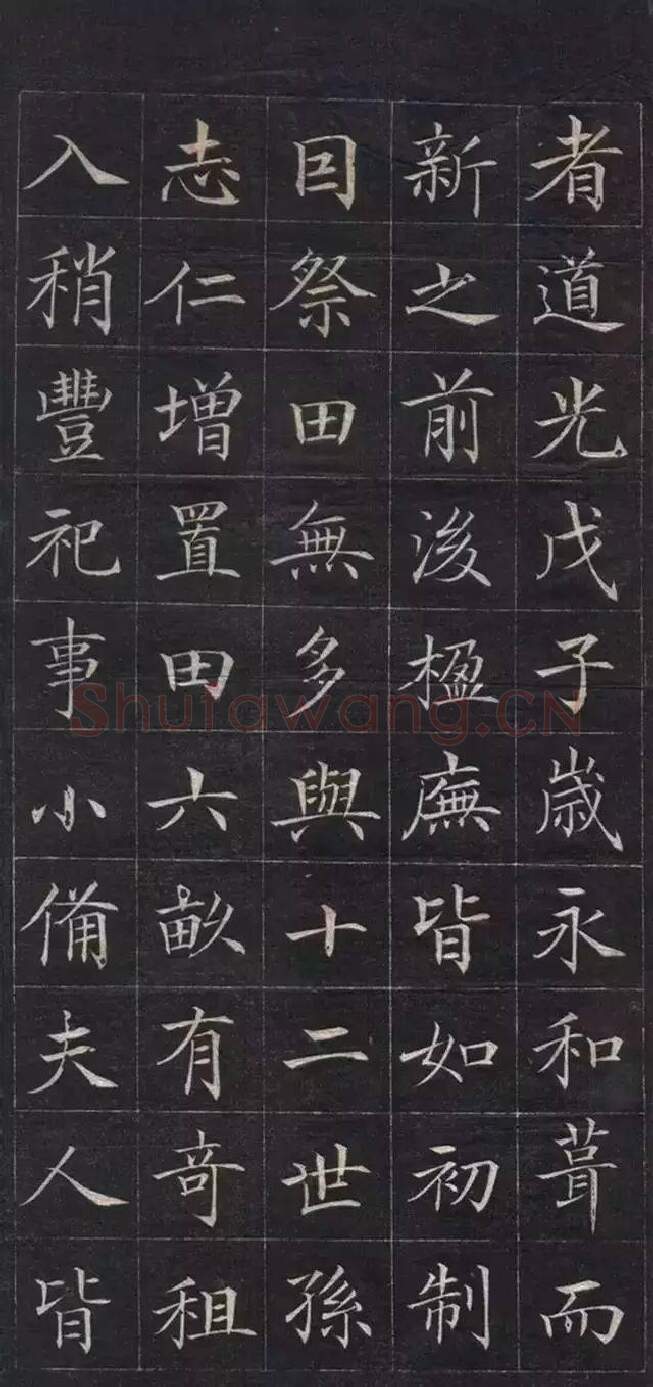 者道光戊子歲永和葺而
新之前後楹廡皆如初制
囙祭田無多與十二世孫
志仁增置田六畝有奇租
入稍豐祀事小備夫人皆
Shufawang.CN